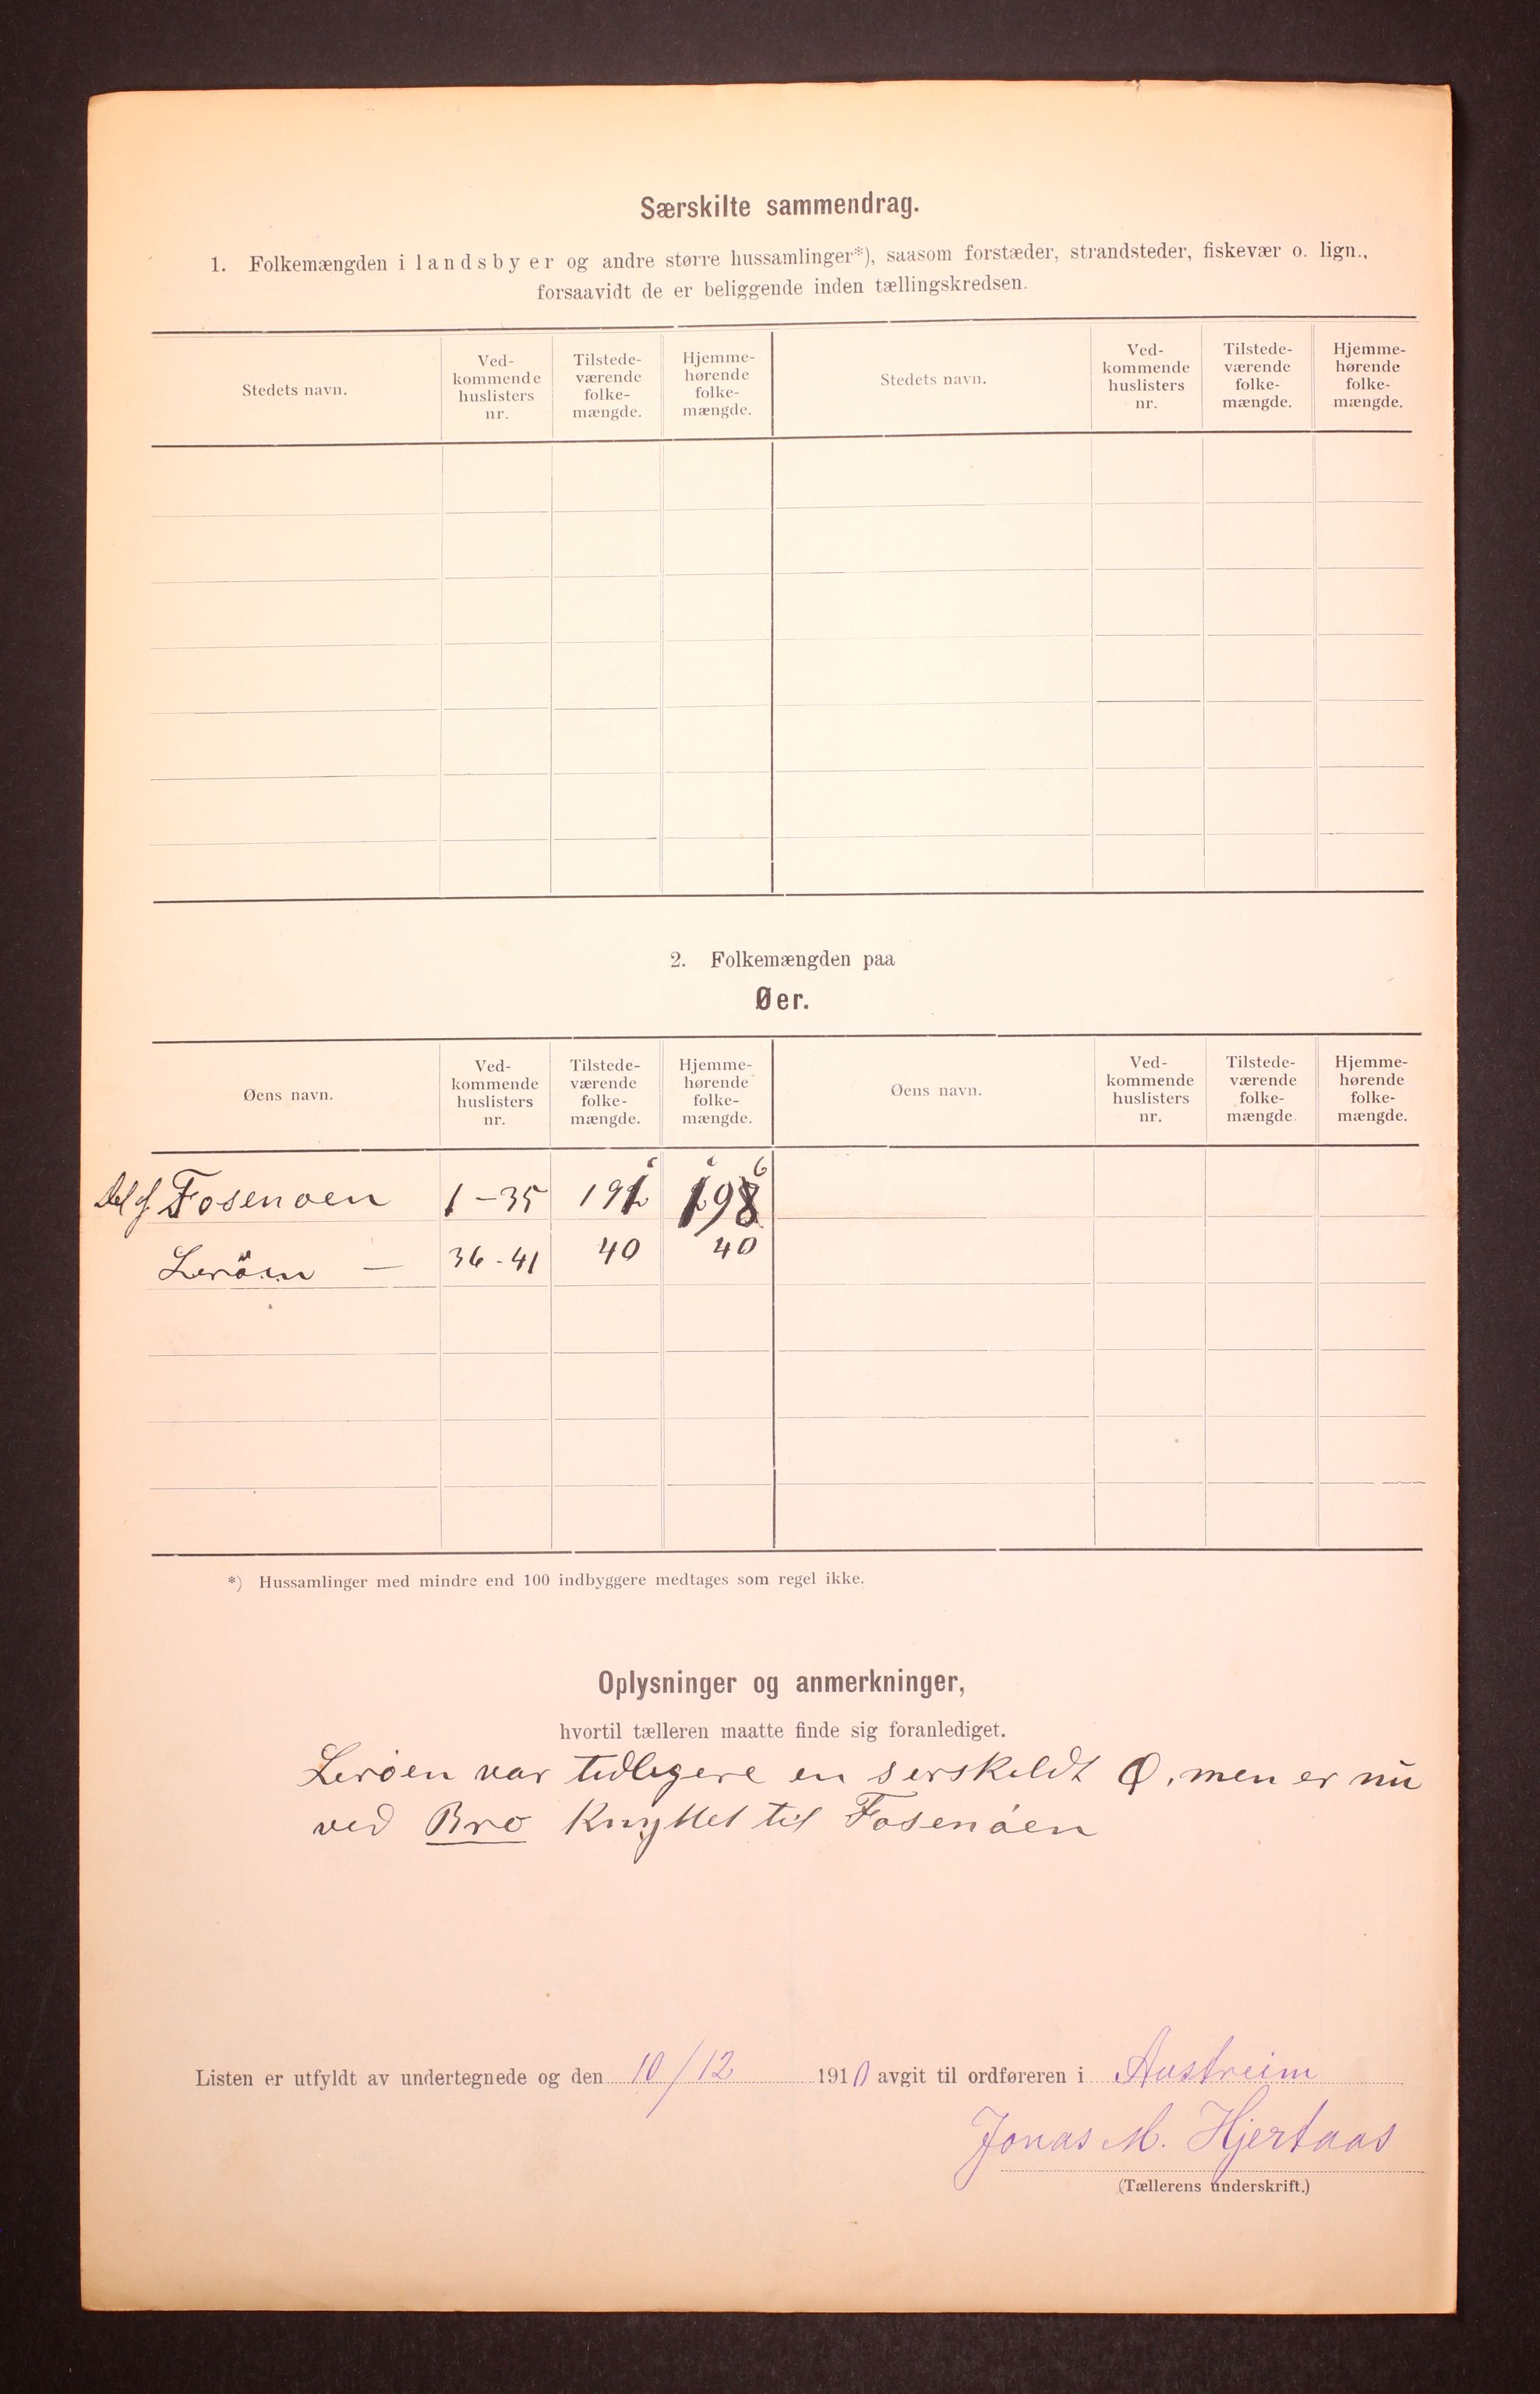 Særskilte sammendrag.
1. Folkemængden i landsbyer og andre større hussamlinger*), saasom forstæder, strandsteder, fiskevær o. lign.,
forsaavidt de er beliggende inden tællingskredsen.
Stedets navn.
Ved-
kommende
huslisters
nr.
Tilstede-
værende
folke-
mængde.
Hjemme-
hørende
folke-
mængde.
Stedets navn.
Ved-
kommende
huslisters
nr.
Tilstede-
værende
folke-
mængde.
Hjemme-
hørende
folke-
mængde.
2. Folkemængden paa
Øer.
Øens navn.
Ved-
kommende
huslisters
nr.
Tilstede-
værende
folke-
mængde.
Hjemme-
hørende
folke-
mængde.
Øens navn.
Ved-
kommende
huslisters
nr.
Tilstede-
værende
folke-
mængde.
Hjemme-
hørende
folke-
mængde.
Del af Fosenøen 1-35
Lerøen — 36-41 40 40
*) Hussamlinger med mindre end 100 indbyggere medtages som regel ikke.
Oplysninger og anmerkninger,
hvortil tælleren maatte finde sig foranlediget.
Lerøen var tidligere en serskeldt Ø, men er nu
ved Bro knyttet til Fosenøen
Listen er utfyldt av undertegnede og den 10/12 1910 avgit til ordføreren i Austreim
Jonas M. Hjertaas
(Tællerens underskrift.)